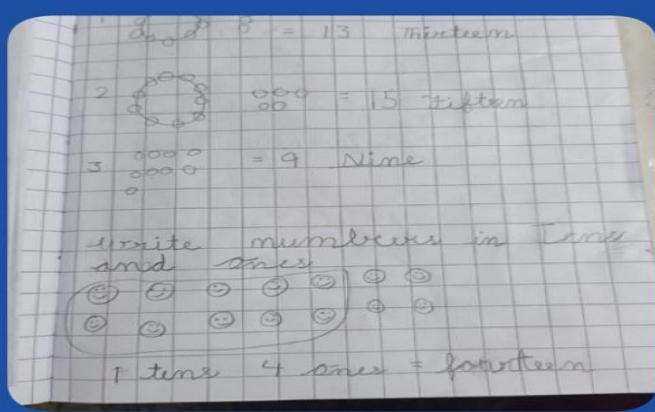 8 = 13 Thirteen
2 = 15 fifteen
3 = 9 Nine
write numbers in Tens
and ones
1 tens 4 ones = fourteen